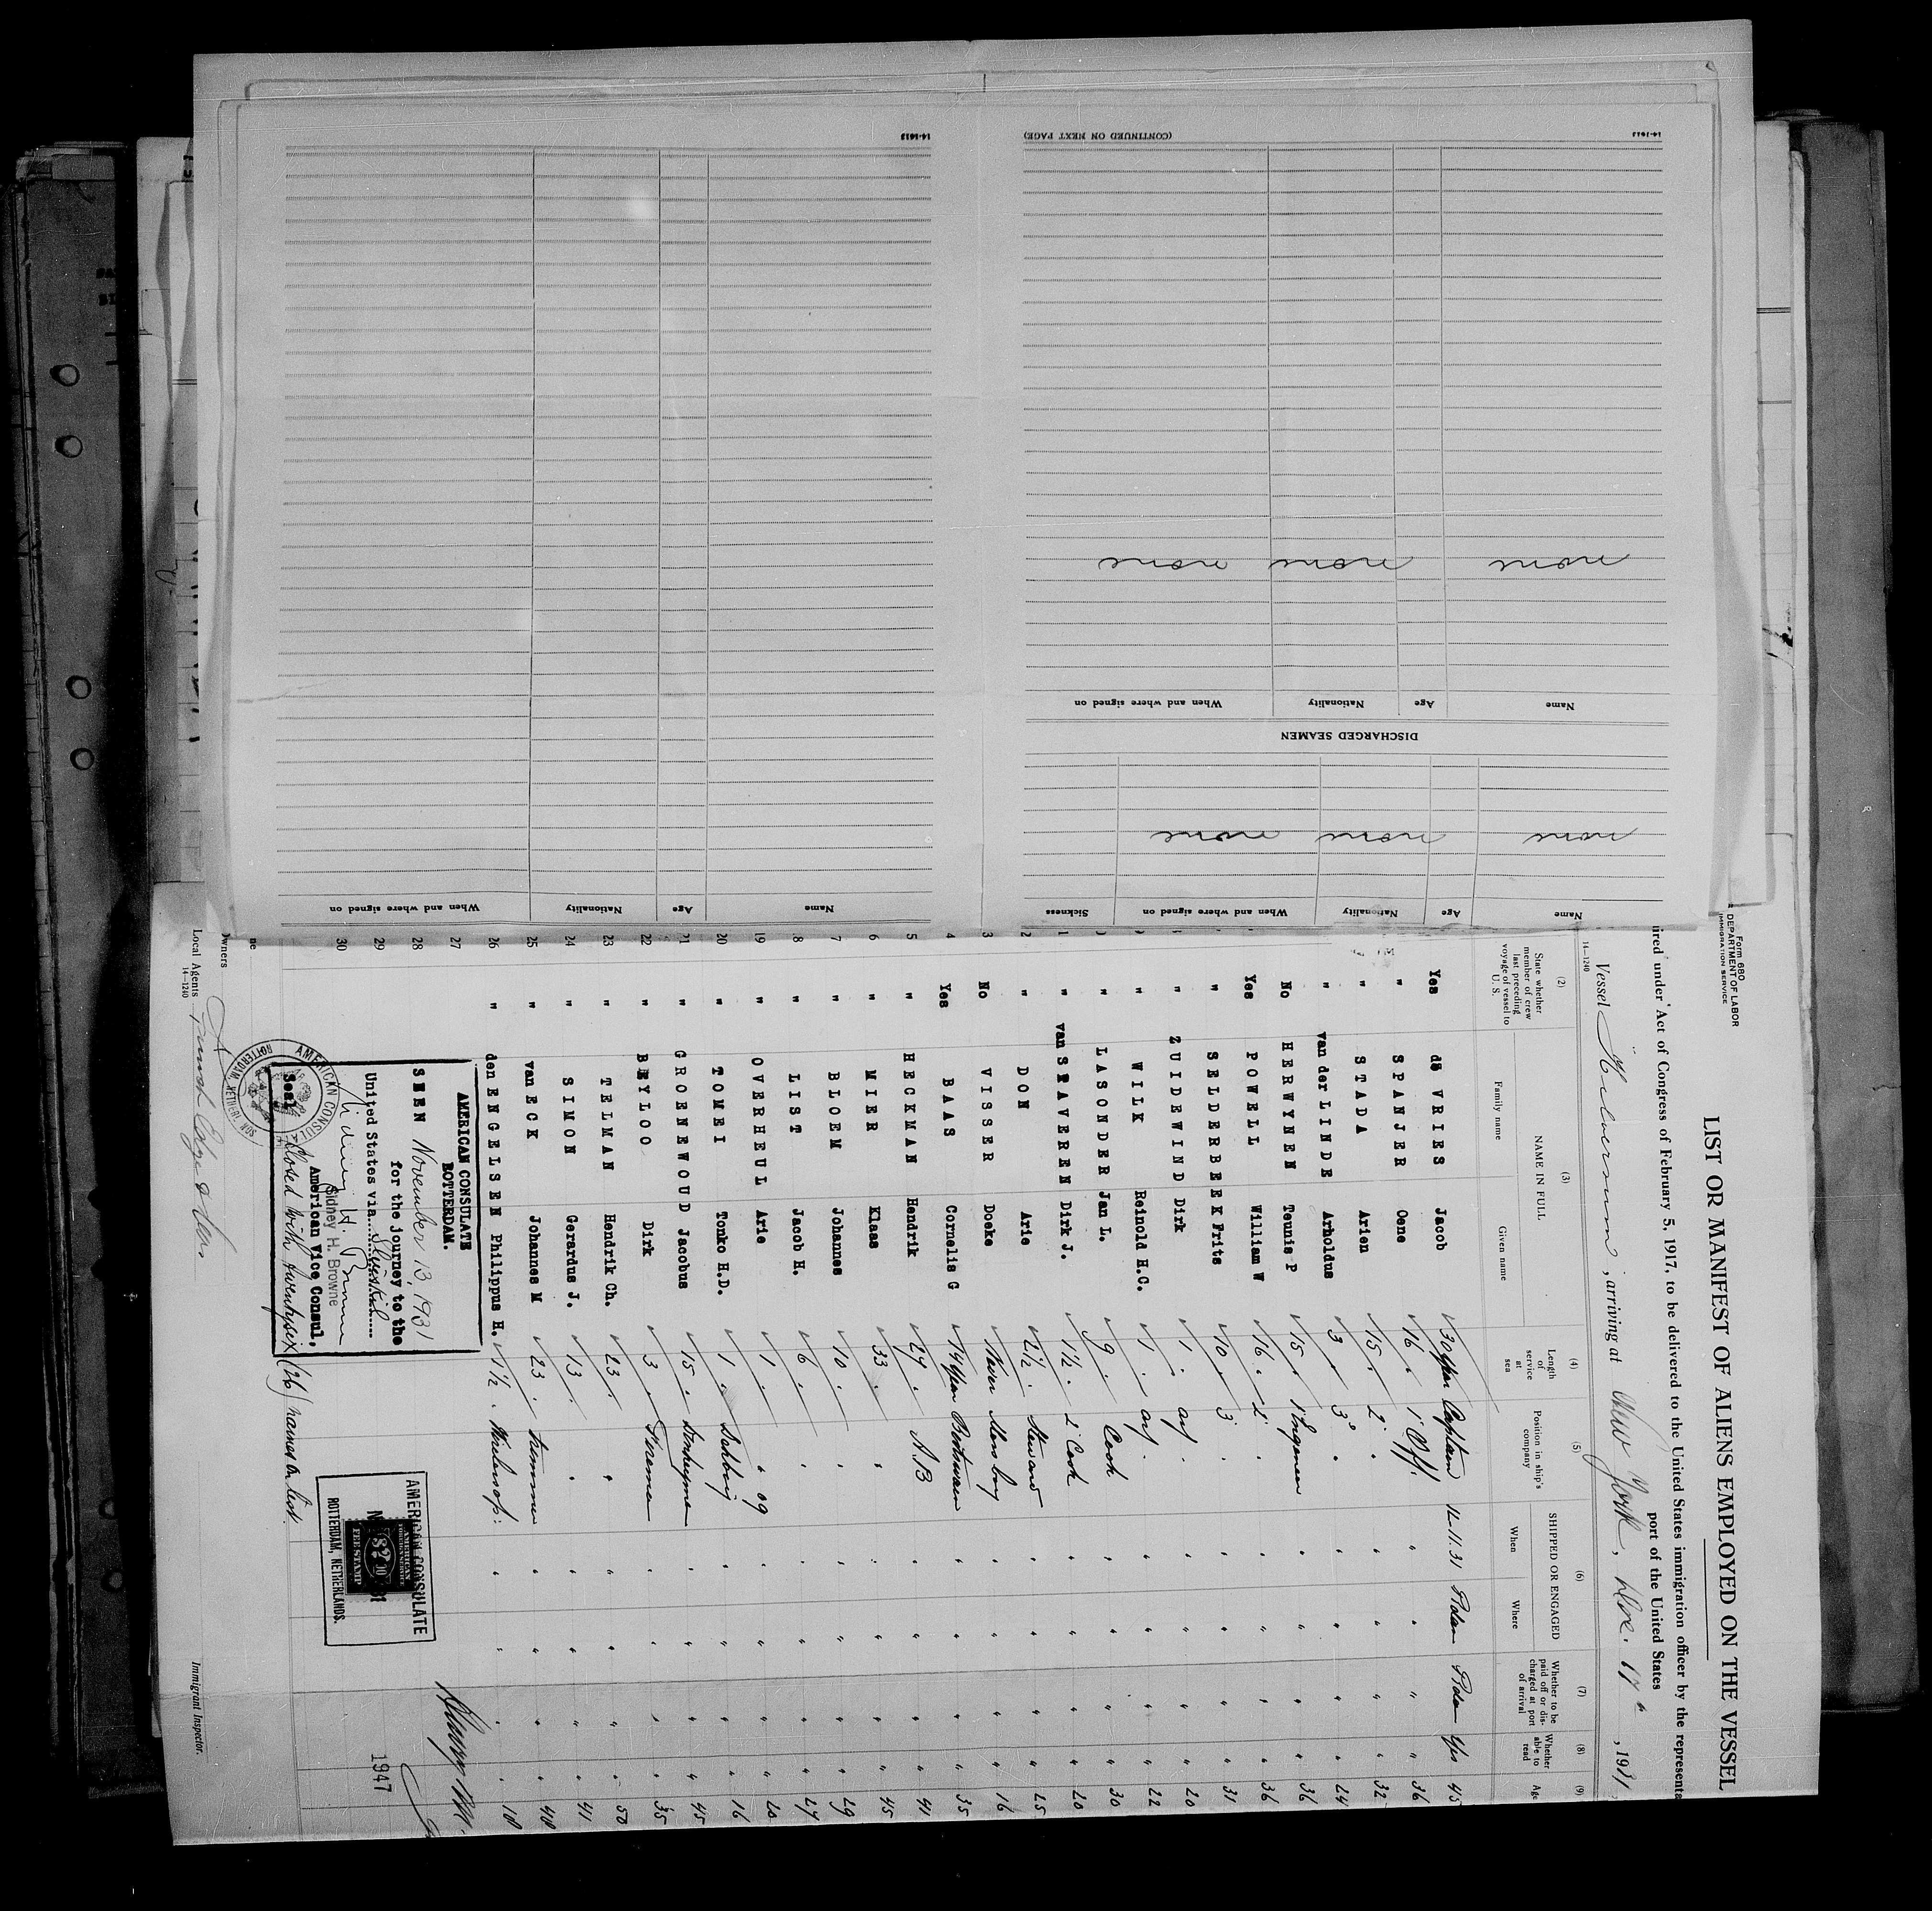 14-1613
(CONTINUED ON NEXT PAGE)
14-1613
none none none
Name Age Nationality When and where signed on
DISCHARGED SEAMEN
none none none
Name Age Nationality When and where signed on Sickness
Name Age Nationality When and where signed on
Form 680
DEPARTMENT OF LABOR
IMMIGRATION SERVICE
LIST OR MANIFEST OF ALIENS EMPLOYED ON THE VESSEL
ired under Act of Congress of February 5, 1917, to be delivered to the United States immigration officer by the representa
port of the United States
Vessel Hilversum, arriving at New York, Dec. 17th, 1931
14-1240
(2) (3) (4) (5) (6) (7) (8) (9)
State whether member of crew last preceding voyage of vessel to U. S.
NAME IN FULL
Family name Given name
Length of service at sea
Position in ship's company
SHIPPED OR ENGAGED
When Where
Whether to be paid off or discharged at port of arrival
Whether able to read
Age
Yes de VRIES Jacob 30 year Captain 12.11.31 R'dam R'dam Yes 45
" SPANJER Oene 16 " 1 Off. " " " " 36
" STADA Arien 15 " 2 " " " " " 32
" van der LINDE Arholdus 3 " 3 " " " " " 24
No HERWYNEN Teunis P 15 " 1 Engineer " " " " 36
Yes POWELL William W 16 " 2 " " " " " 36
" SELDERBEEK Frits 10 " 3 " " " " " 31
" ZUIDEWIND Dirk 1 " " " " " 20
" WILK Reinold H.C. 1 " " " " " 22
" LASONDER Jan L. 9 " Cook " " " " 30
1 " van STAVEREN Dirk J. 1½ " 2 Cook " " " " 20
2 " DON Arie 2½ " Steward " " " " 25
3 No VISSER Doeke Never Messboy " " " " 16
4 Yes BAAS Cornelis G 14 year Boatswain " " " " 35
5 " HECKMAN Hendrik 29 " A.B " " " " 41
6 " MIER Klaas 33 " " " " " " 45
7 " BLOEM Johannes 10 " " " " " " 29
8 " LIST Jacob H. 6 " " " " " " 27
19 " OVERHEUL Arie 1 " " " " " " 20
20 " TOMEI Tonko H.D. 1 " " " " " 16
21 " GROENEWOUD Jacobus 15 " Donkeyman " " " " 45
22 " BEYLOO Dirk 3 " Fireman " " " " 35
23 " TELMAN Hendrik Ch. 23 " " " " " " 50
24 " SIMON Gerardus J. 13 " " " " " " 41
25 " van ECK Johannes M 23 " Trimmer " " " " 40
26 " den ENGELSEN Philippus H. 1½ " " " " " 18
27
28
29
30
AMERICAN CONSULATE
ROTTERDAM.
SEEN November 13, 1931
for the journey to the
United States via Sluiskil
Sidney H. Browne
Sidney H. Browne
American Vice Consul,
Seal
AMERICAN CONSULATE
ROTTERDAM, NETHERLANDS
Closed with twentysix (26) names on list.
AMERICAN CONSULATE
AMERICAN FOREIGN SERVICE
$2.00
FEE STAMP
ROTTERDAM, NETHERLANDS.
1947
Owners
Local Agents
14-1240
Immigrant Inspector.